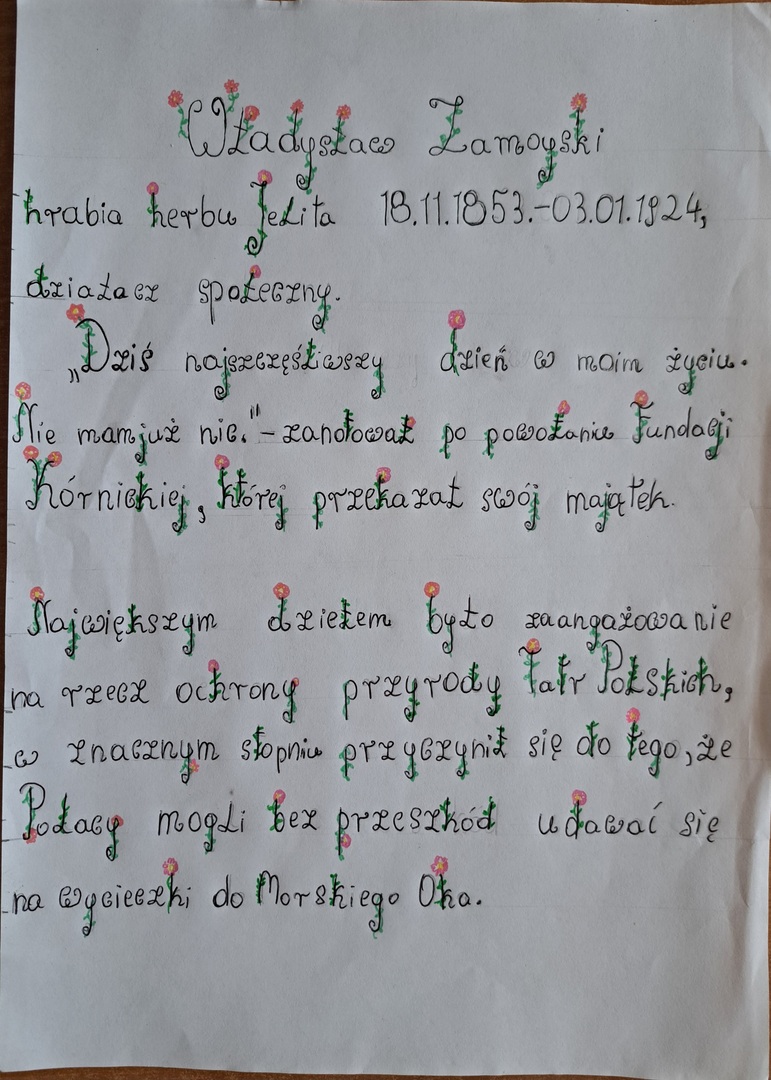 Władysław Zamoyski
hrabia herbu Jelita 18.11.1853.-03.01.1924,
działacz społeczny.
„Dziś najszczęśliwszy dzień w moim życiu.
Nie mam już nic."-zanotował po powołaniu Fundacji
Kórnickiej, której przekazał swój majątek.
Największym dziełem było zaangażowanie
na rzecz ochrony przyrody Tatr Polskich,
w znacznym stopniu przyczynił się do tego, że
Polacy mogli bez przeszkód udawać się
na wycieczki do Morskiego Oka.